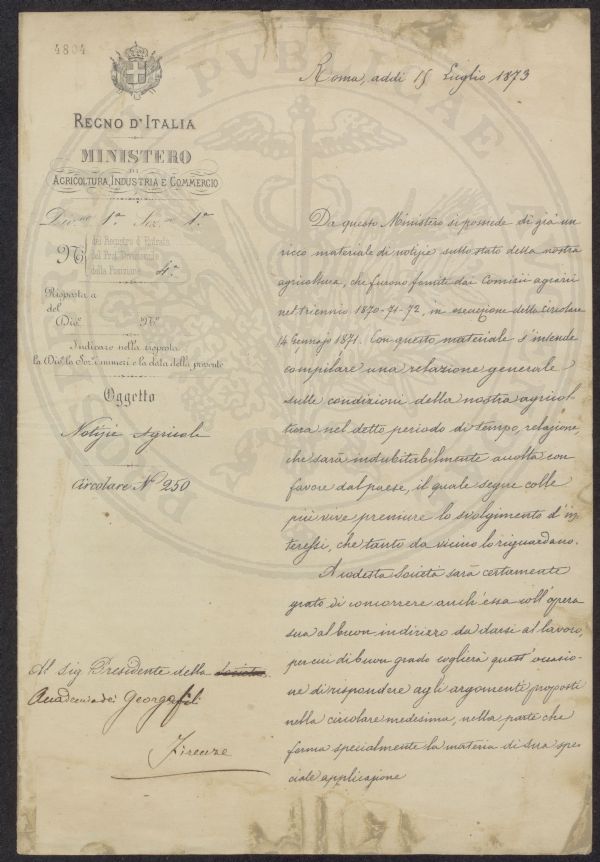 4804
Roma, addì 15 Luglio 1873
REGNO D'ITALIA
MINISTERO
DI
AGRICOLTURA, INDUSTRIA E COMMERCIO
Div.ne 1ª Sez.ne 1ª
N.º
del Registro d'Entrata
del Prot. Divisionale
della Posizione 4ª
Risposta a
del
Div.e N.º
Indicare nella risposta
la Div.e la Sez.e i numeri e la data della presente
Oggetto
Notizie Agricole
Circolare Nº 250
Da questo Ministero si possede di già un
ricco materiale di notizie sullo stato della nostra
agricoltura, che furono fornite dai Comizii agrarii
nel triennio 1870-71-72, in esecuzione della circolare
14 Gennajo 1871. Con questo materiale s'intende
compilare una relazione generale
sulle condizioni della nostra agricol
tura nel detto periodo di tempo, relazione,
che sarà indubitabilmente accolta con
favore dal paese, il quale segue colle
più vive premure lo svolgimento d'in
teressi, che tanto da vicino lo riguardano.
A codesta Società sarà certamente
grato di concorrere anch'essa coll'opera
sua al buon indirizzo da darsi al lavoro,
per cui di buon grado coglierà quest'occasio-
ne di rispondere agli argomenti proposti
nella circolare medesima, nella parte che
forma specialmente la materia di sua spe-
ciale applicazione
Al Sig Presidente della Società
Accademia dei Georgofili
Firenze
PUBLICAE